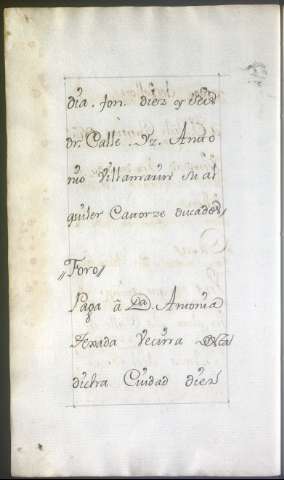 dia. son. diez y seis
dr. Calle. Vz. Anto
nio Villamarin su al
quiler Catorze ducados
"Foro"
Paga â Da. Antonia
Texada Vecina
dicha Ciudad diez